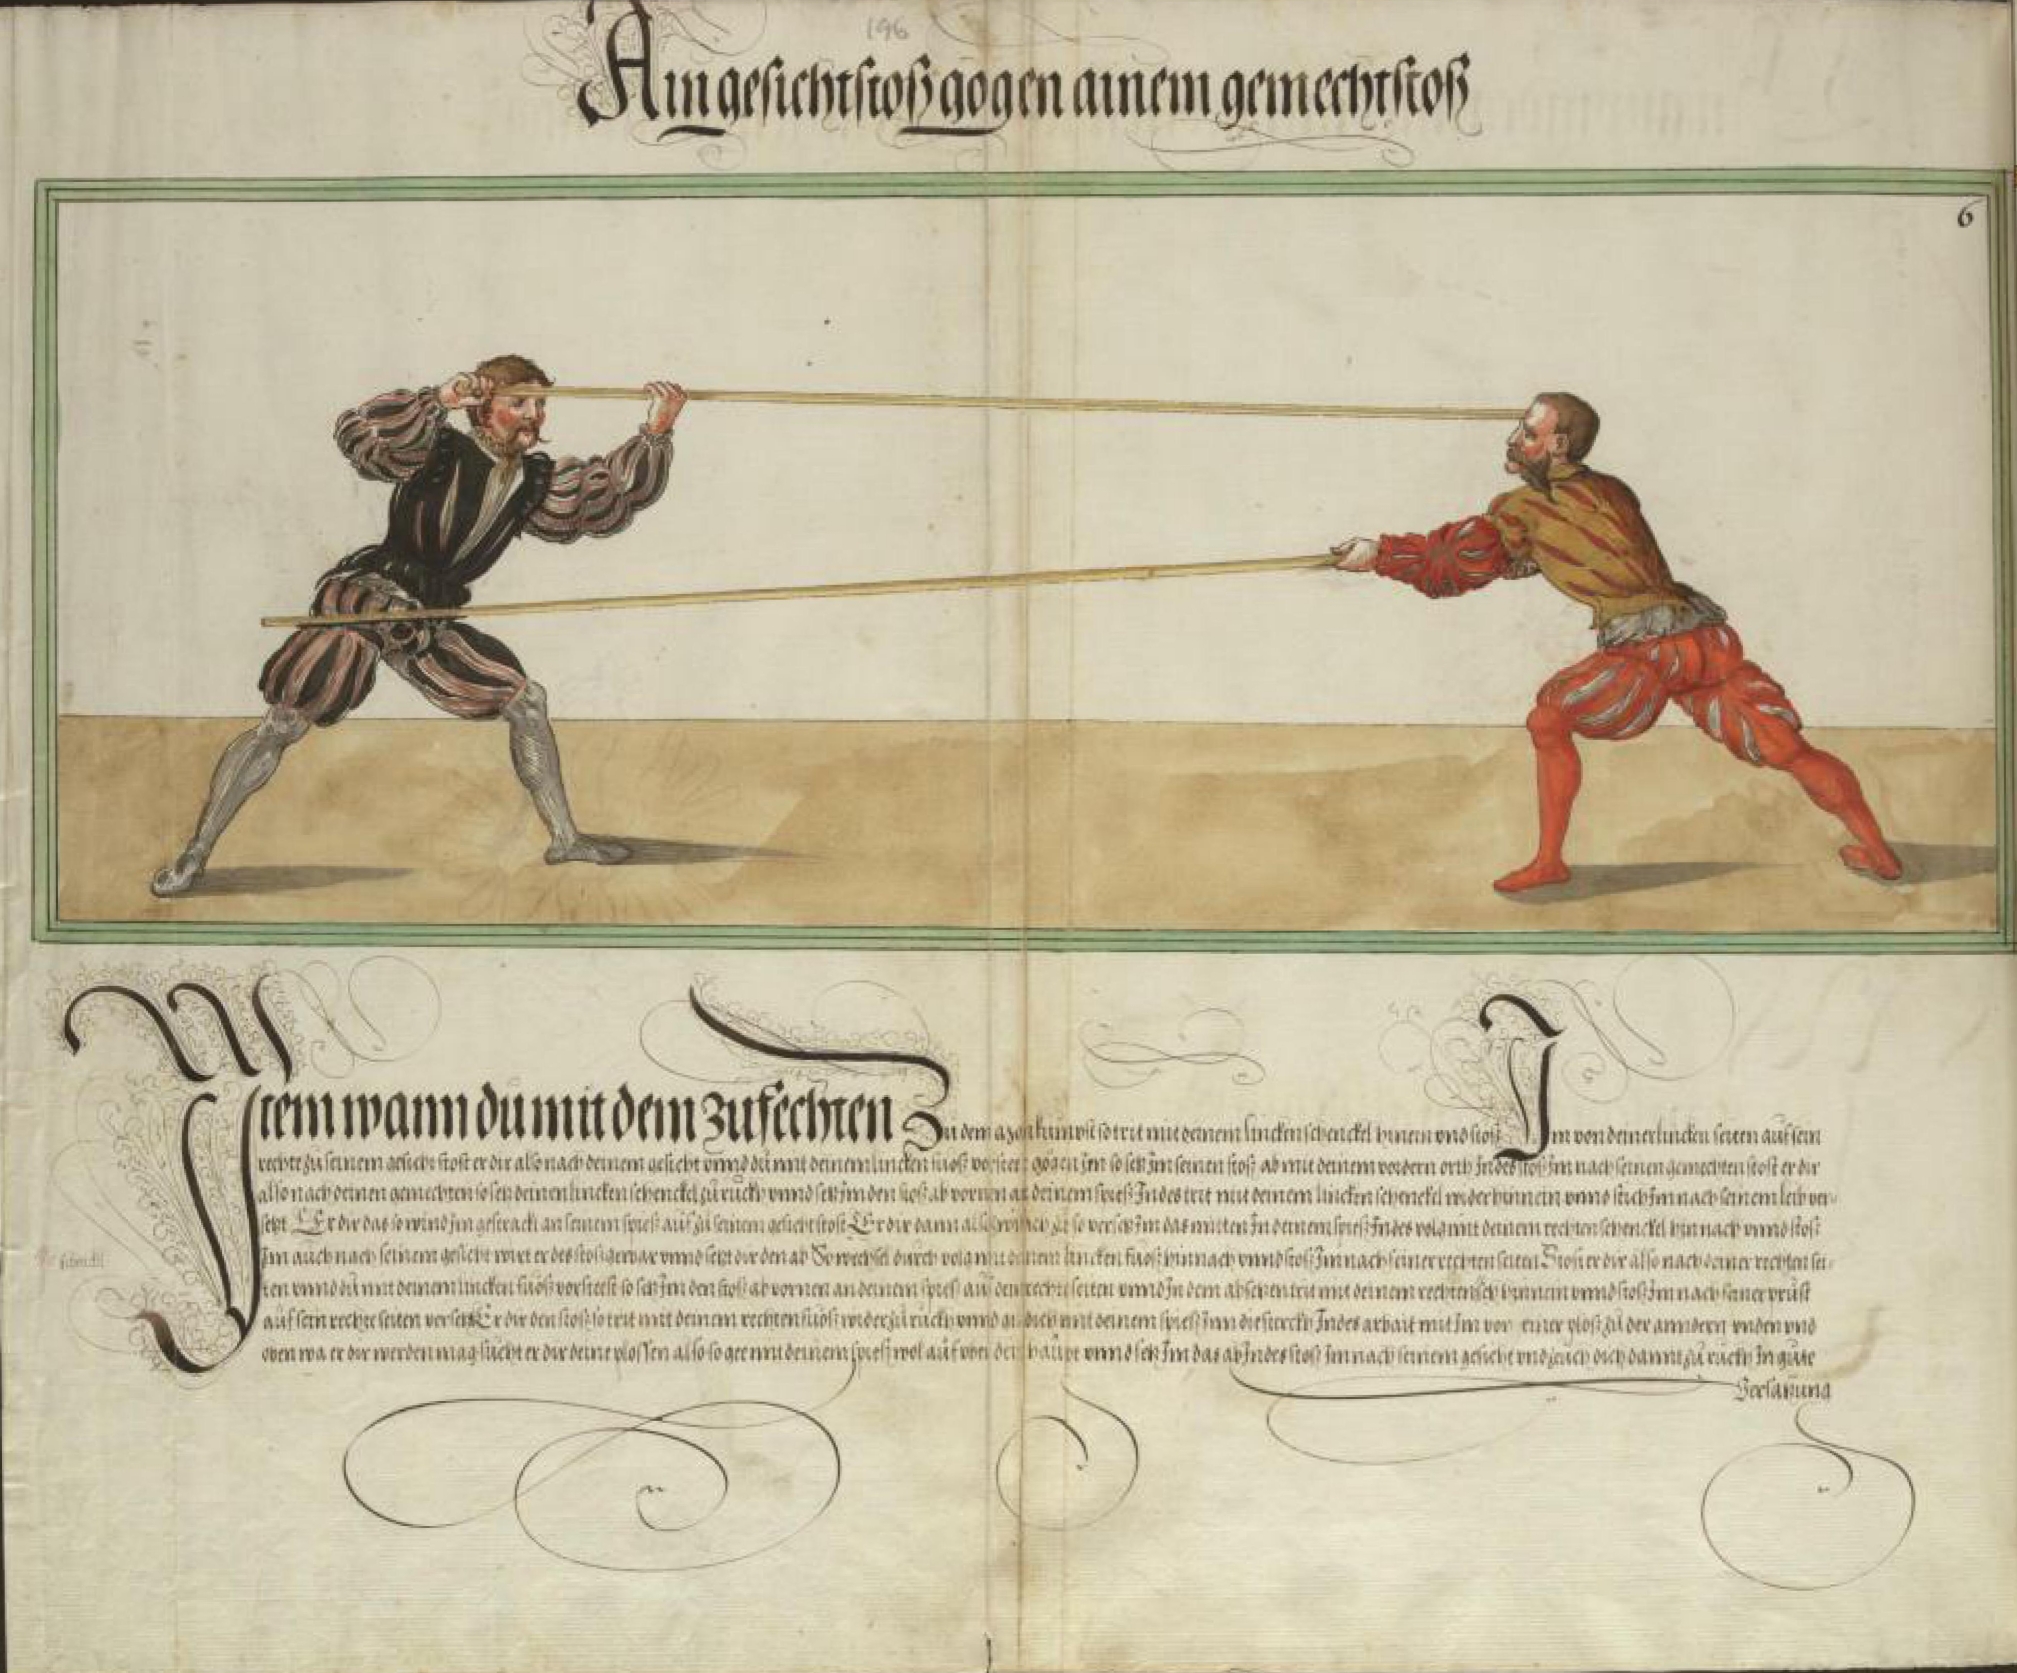 196
Ain gesichtstoß gogen ainem gemechtstoß
6
Item wann du mit dem zufechten Zu dem man kumbst so trit mit deinem lincken schenckel hinein vnnd stoß Im von deiner lincken seiten auf sein
rechte zu seinem gesicht stost er dir also nach deinem gesicht vnnd du mit deinem lincken fuoß vorsteest gogen Im so setz Im seinen stoß ab mit deinem vordern orth Indes stoß Im nach seinen gemechten stost er dir
also nach deinen gemechten so setz deinen lincken schenckel zu ruckh vnnd setz Im den stoß ab vornen an deinem spieß Indes trit mit deinem lincken schenckel wider hinnein vnnd stich Im nach seinem leib ver-
setzt Er dir das so wind Im gestrack an seinem spieß auf zu seinem gesicht stost Er dir dann also so versetz Im das mitten In deinem spieß Indes volg mit deinem rechten schenckel hin nach vnnd stoß
Im auch nach seinem gesicht wirt er des stoß gewar vnnd setzt dir den ab So wechsel durch volg mit deinem lincken fuoß hinnach vnnd stoß Im nach seiner rechten seiten Stost er dir also nach deiner rechten sei-
schenckl
ten vnnd du mit deinem lincken fuoß vorsteest so setz Im den stoß ab vornen an deinem spieß auf dein rechte seiten vnnd In dem absetzen trit mit deinem rechten sch hinnein vnnd stoß Im nach seiner prust
auf sein rechte seiten versetzt Er dir den stoß so trit mit deinem rechten fuoß wider zu ruckh vnnd dich mit deinem spieß Inn die sterckh Indes arbait mit Im von einer ploß zu der anndern vnden vnd
oben wa er dir werden mag sucht er dir deine plossen also so gee mit deinem spieß wol auf vber dein haupt vnnd setz Im das ab Indes stoß Im nach seinem gesicht vnd zeuch dich damit zu ruckh In gute
Versatzung